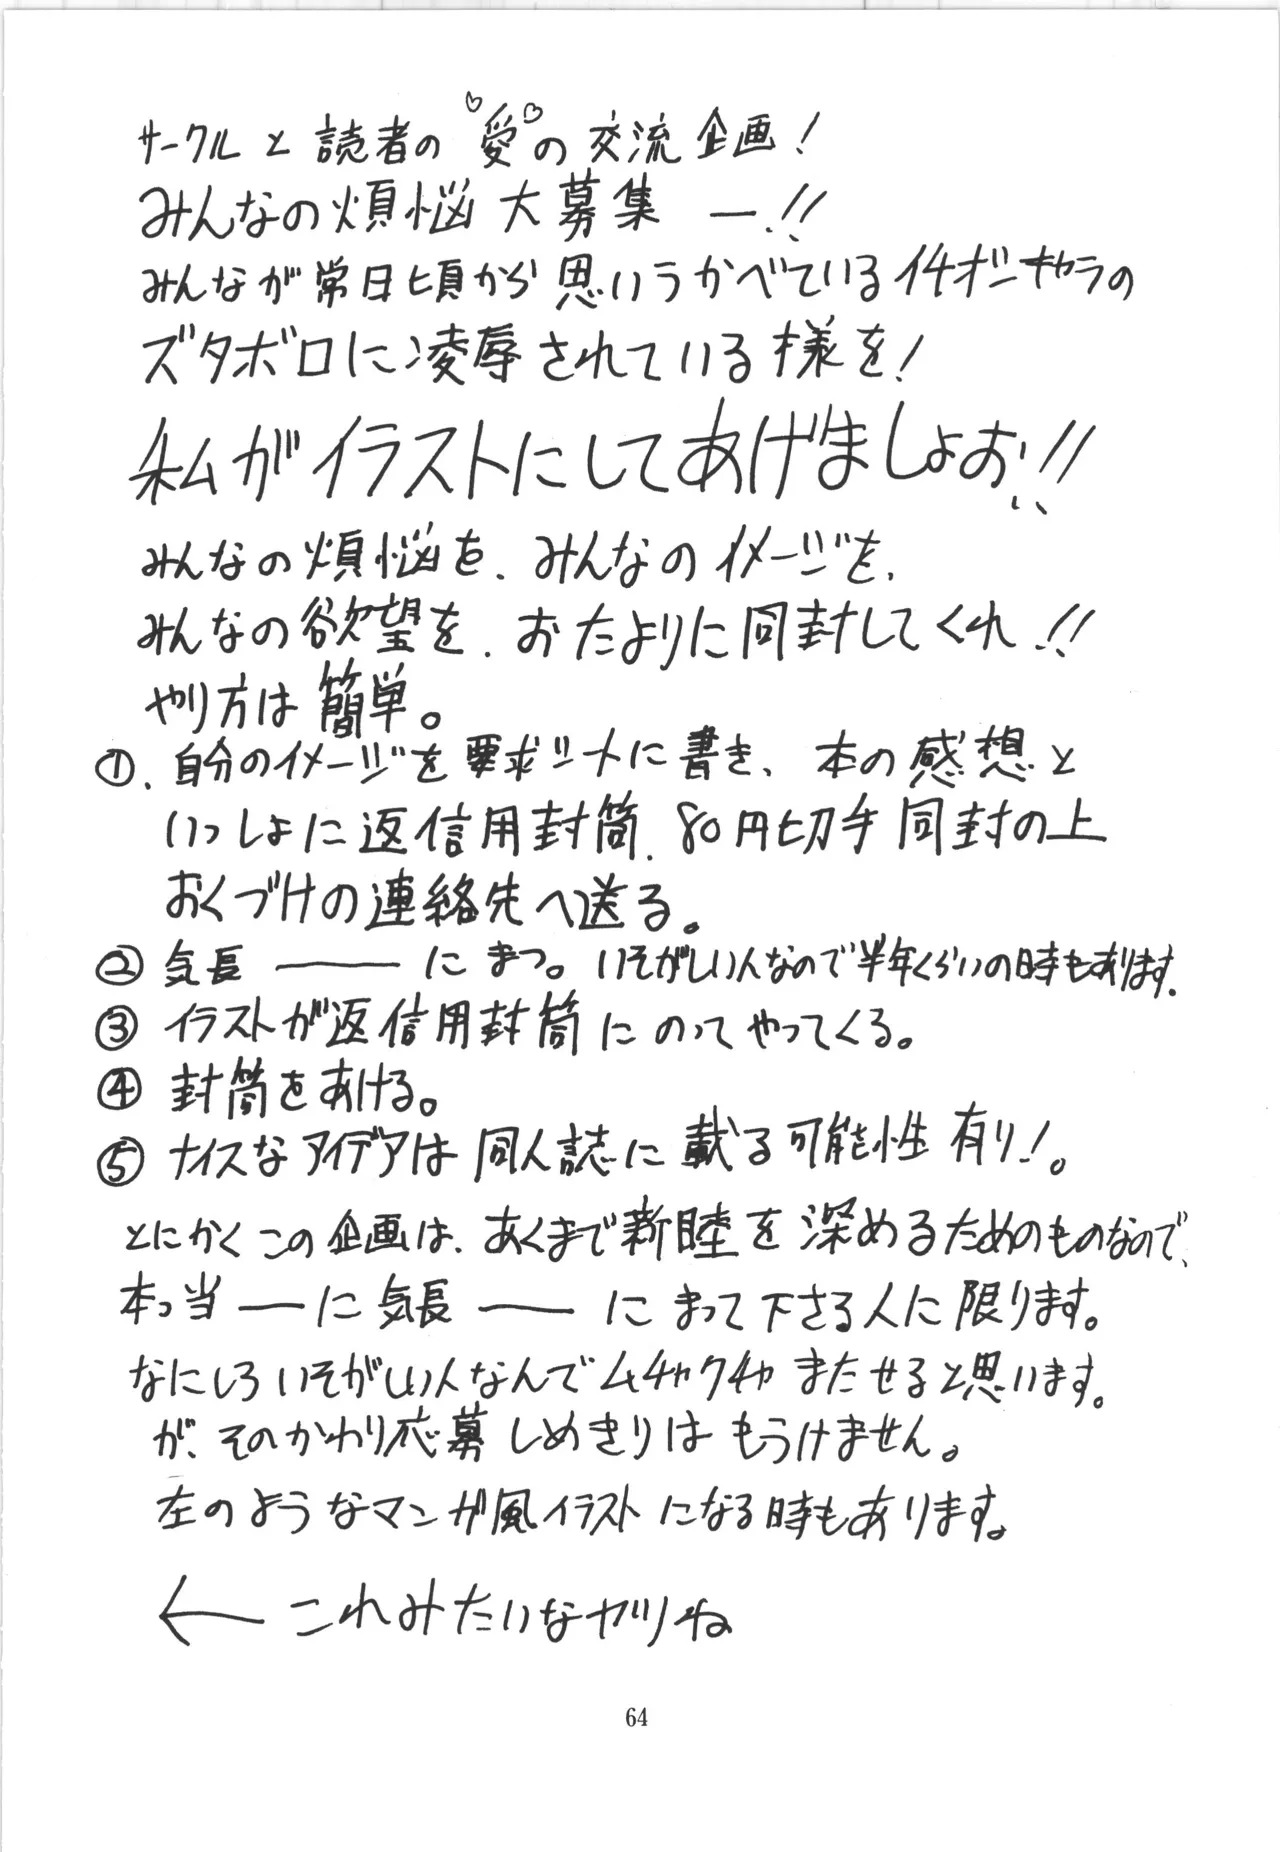 サークルと読者の愛の交流企画！
みんなの煩悩大募集ー!!
みんなが常日頃から思いうかべているイチオシキャラの
ズタボロに凌辱されている様を！
私がイラストにしてあげましょお!!
みんなの煩悩を、みんなのイメージを、
みんなの欲望を、おたよりに同封してくれ!!
やり方は簡単。
①、自分のイメージを要求シートに書き、本の感想と
いっしょに返信用封筒、80円切手同封の上
おくづけの連絡先へ送る。
②気長――にまつ。いそがしい人なので半年くらいの時もあります。
③イラストが返信用封筒にのってやってくる。
④封筒をあける。
⑤ナイスなアイデアは同人誌に載る可能性有り！。
とにかくこの企画は、あくまで新睦を深めるためのものなので、
本っ当――に気長――にまって下さる人に限ります。
なにしろいそがしい人なんでムチャクチャまたせると思います。
が、そのかわり応募しめきりはもうけません。
左のようなマンガ風イラストになる時もあります。
←これみたいなヤツね
64